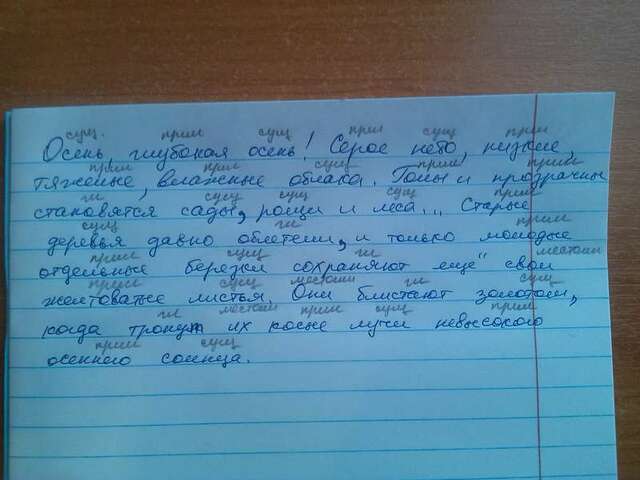 сущ. прил сущ прил сущ прил
Осень, глубокая осень! Серое небо, низкие,
прил прил сущ прил прил
тяжёлые, влажные облака. Голы и прозрачны
гл сущ сущ сущ прил
становятся сады, рощи и леса... Старые
сущ гл прил
деревья давно облетели, и только молодые
прил сущ гл местоим
отдельные березки сохраняют еще свои
прил сущ местоим гл сущ
желтоватые листья. Они блистают золотом,
гл местоим прил сущ прил
когда тронут их косые лучи невысокого
прил сущ
осеннего солнца.